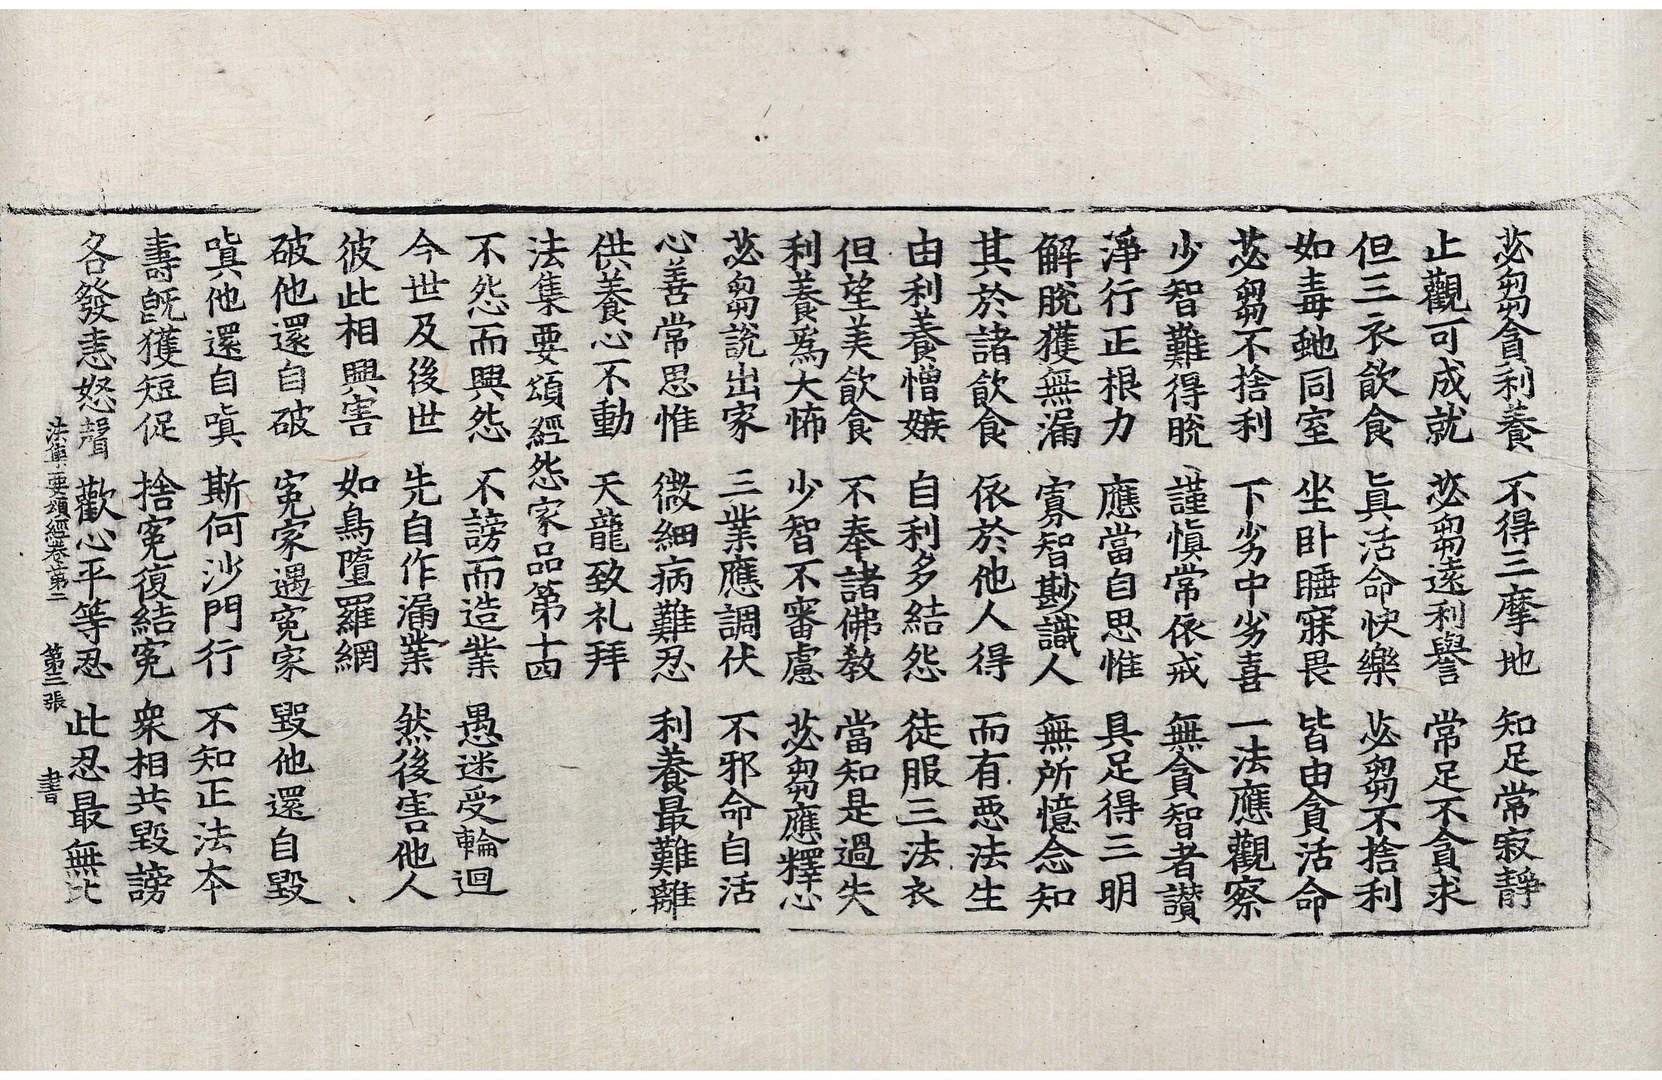 苾芻貪利養　不得三摩地　知足常寂靜
止觀可成就　苾芻遠利譽　常足不貪求
但三衣飮食　眞活命快樂　苾芻不捨利
如毒虵同室　坐卧睡寐畏　皆由貪活命
苾芻不捨利　下劣中劣喜　一法應觀察
少智難得脫　謹愼常依戒　無貪智者讃
淨行正根力　應當自思惟　具足得三明
解脫獲無漏　寡智尠識人　無所憶念知
其於諸飮食　依於他人得　而有惡法生
由利養憎嫉　自利多結怨　徒服三法衣
但望美飮食　不奉諸佛敎　當知是過失
利養爲大怖　少智不審慮　苾芻應釋心
苾芻說出家　三業應調伏　不邪命自活
心善常思惟　微細病難忍　利養最難離
供養心不動　天龍致礼拜
法集要頌經怨家品第十四
不怨而興怨　不謗而造業　愚迷受輪迴
今世及後世　先自作漏業　然後害他人
彼此相興害　如鳥墮羅網
破他還自破　寃家遇寃家　毀他還自毀
嗔他還自嗔　斯何沙門行　不知正法本
壽旣獲短促　捨寃復結寃　衆相共毀謗
各發恚怒聲　歡心平等忍　此忍最無比
法集要頌經卷第二　第三張　書